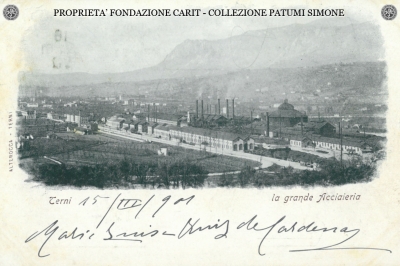 PROPRIETA' FONDAZIONE CARIT - COLLEZIONE PATUMI SIMONE
ALTEROCCA - TERNI
Terni 15/III/901 la grande Acciaieria
Maria Luisa Ruiz de Cardenas